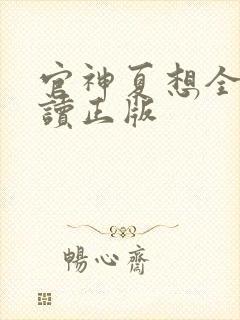 官神夏想全
讀正版
暢心齋